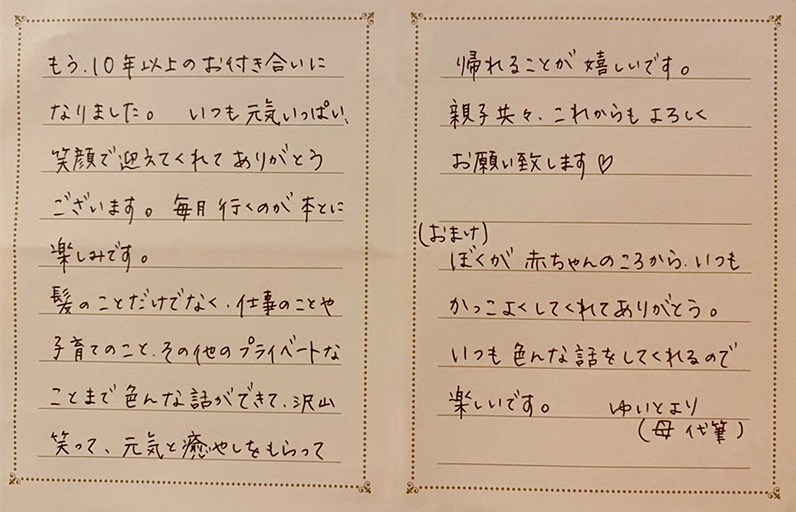 もう、10年以上のお付き合いに
なりました。 いつも元気いっぱい、
笑顔で迎えてくれてありがとう
ございます。毎月行くのが本とに
楽しみです。
髪のことだけでなく、仕事のことや
子育てのこと、その他のプライベートな
ことまで色んな話ができて、沢山
笑って、元気と癒やしをもらって
帰れることが嬉しいです。
親子共々、これからもよろしく
お願い致します♡
(おまけ)
ぼくが赤ちゃんのころから、いつも
かっこよくしてくれてありがとう。
いつも色んな話をしてくれるので
楽しいです。 ゆいとより
(母 代筆)